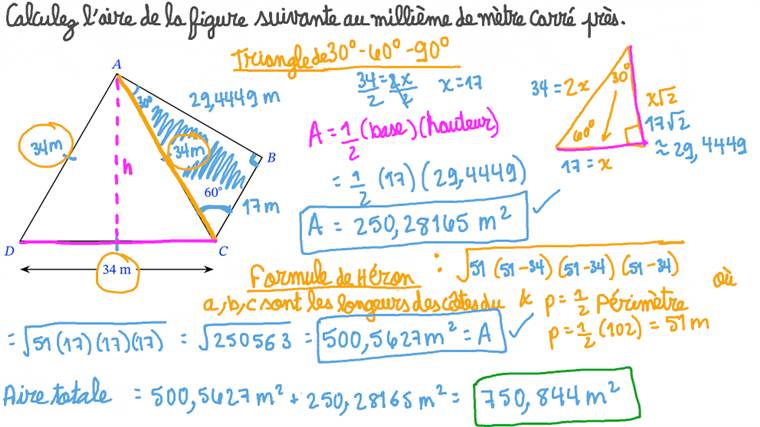 Calculez l'aire de la figure suivante au millième de mètre carré près.
Triangle de 30° - 60° - 90°
34/2 = 2x/2 x = 17
34 = 2x
30°
60°
x√2
17√2
≈ 29,4449
17 = x
A
30°
29,4449 m
34m
34m
h
B
60°
17 m
D
C
34 m
A = 1/2 (base)(hauteur)
= 1/2 (17)(29,4449)
A = 250,28165 m²
Formule de Héron : √51(51-34)(51-34)(51-34) où
a, b, c sont les longueurs des côtés du p = 1/2 Périmètre
p = 1/2 (102) = 51 m
= √51(17)(17)(17) = √250563 = 500,5627 m² = A
Aire totale = 500,5627 m² + 250,28165 m² = 750,844 m²